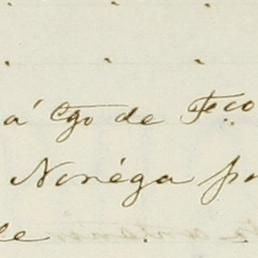 á Cgo de Fco
Noriéga pa
de